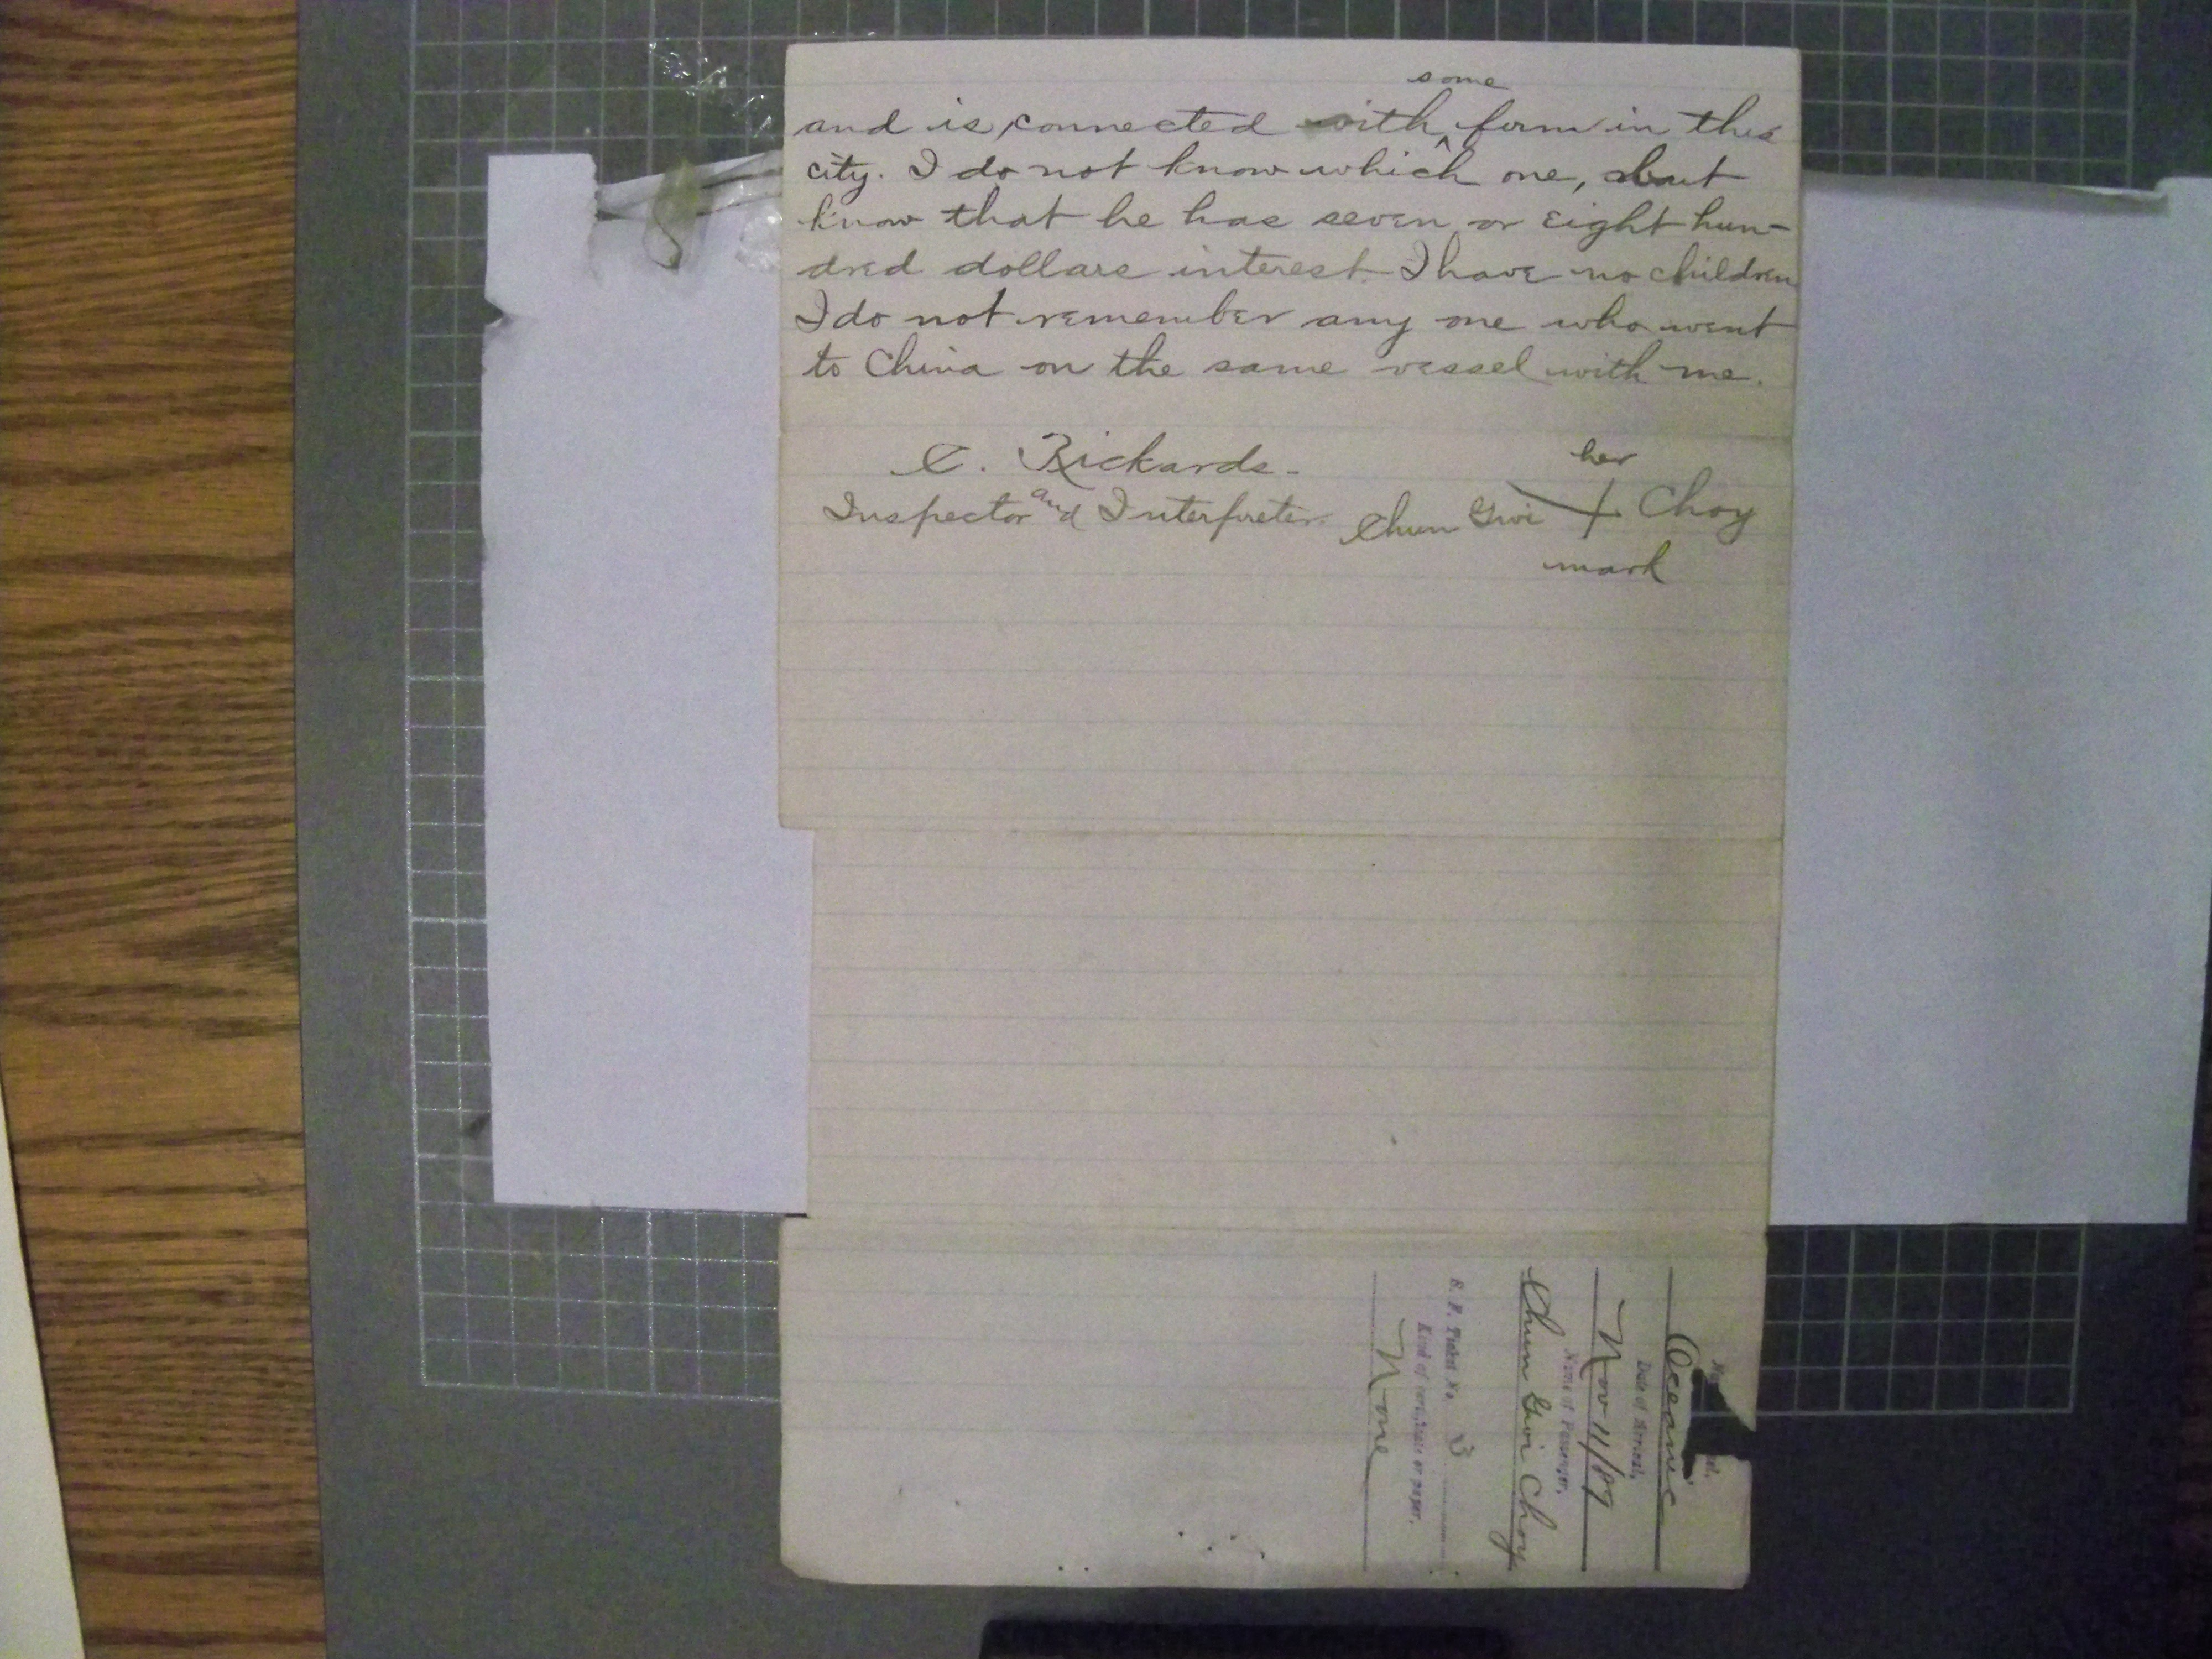 some
and is connected with ^ firm in this
city. I do not know which one, but
know that he has seven or eight hun-
dred dollars interest. I have no children
I do not remember any one who went
to China on the same vessel with me.
C. Rickards.
Inspector and Interpreter.
her
Chun Gwi + Choy
mark
Oceanic
Date of Arrival,
Nov 11/89
Name of Passenger,
Chun Gwi Choy
S. F. Ticket No. 3
Kind of certificate or paper,
None